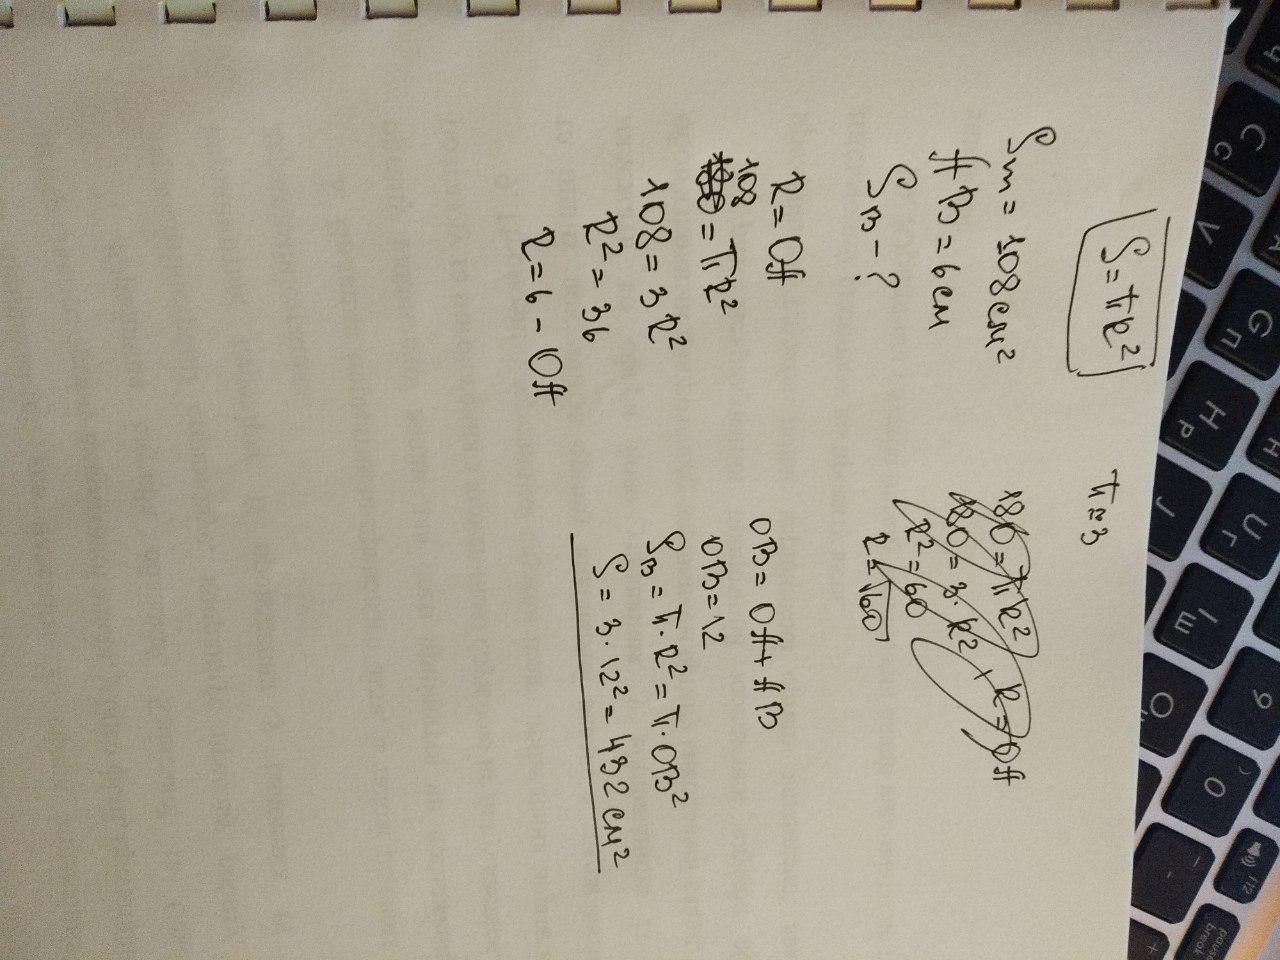 S = πR²
π ≈ 3
Sм = 108 см²
AB = 6 см
SB - ?
R = OA
108 = πR²
108 = 3R²
R² = 36
R = 6 - OA
180 = πR²
180 = 3·R², R = OA
R² = 60
R = √60
OB = OA + AB
OB = 12
SB = π·R² = π·OB²
S = 3·12² = 432 см²
C
с
V
G
П
H
Р
J
U
Г
I
Ш
O
Щ
9
0
-
F12
pause
break
+